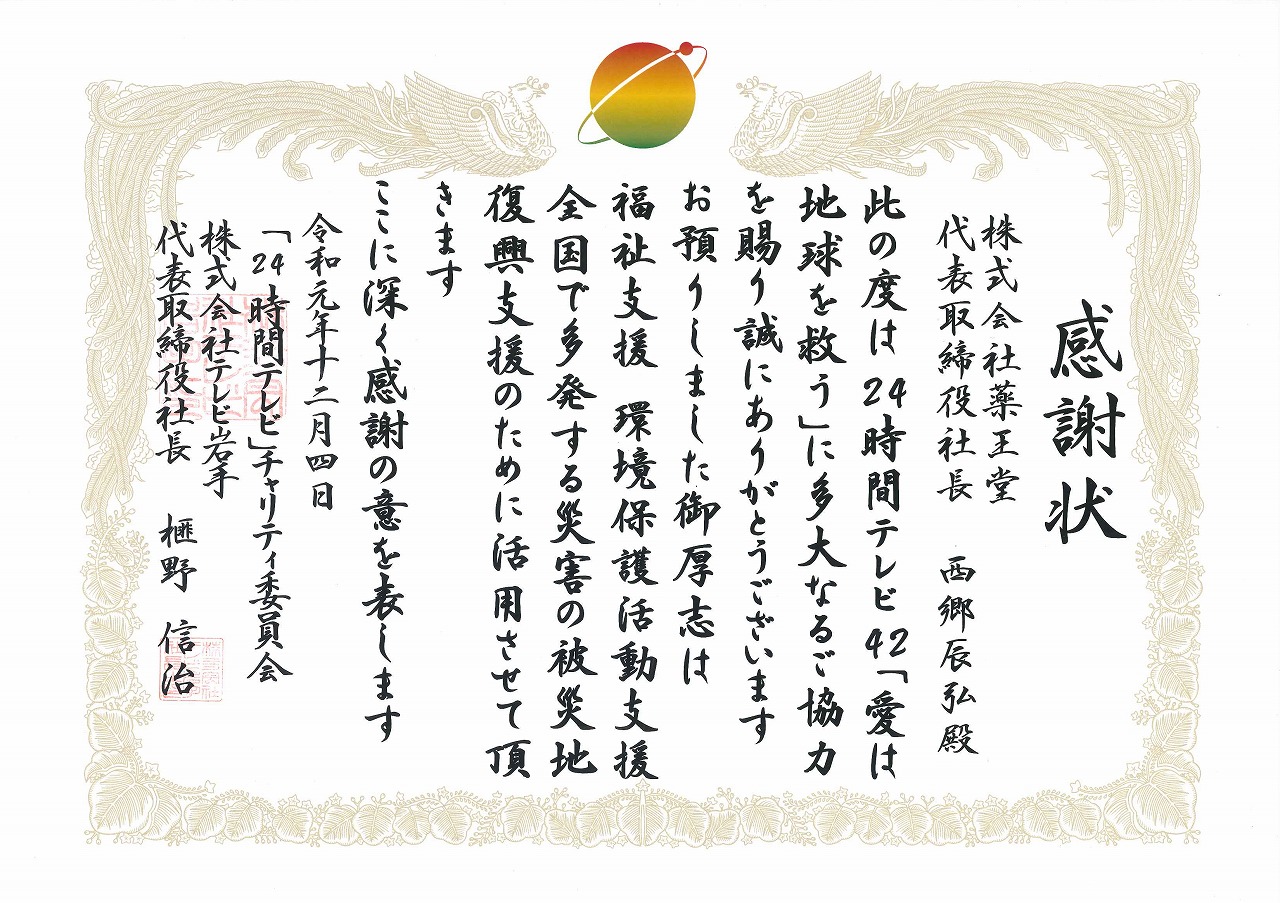 感謝状
株式会社薬王堂
代表取締役社長　西郷辰弘殿
此の度は24時間テレビ42「愛は
地球を救う」に多大なるご協力
を賜り誠にありがとうございます
お預りしました御厚志は
福祉支援　環境保護活動支援
全国で多発する災害の被災地
復興支援のために活用させて頂
きます
ここに深く感謝の意を表します
令和元年十二月四日
「24時間テレビ」チャリティ委員会
株式会社テレビ岩手
代表取締役社長　榧野　信治